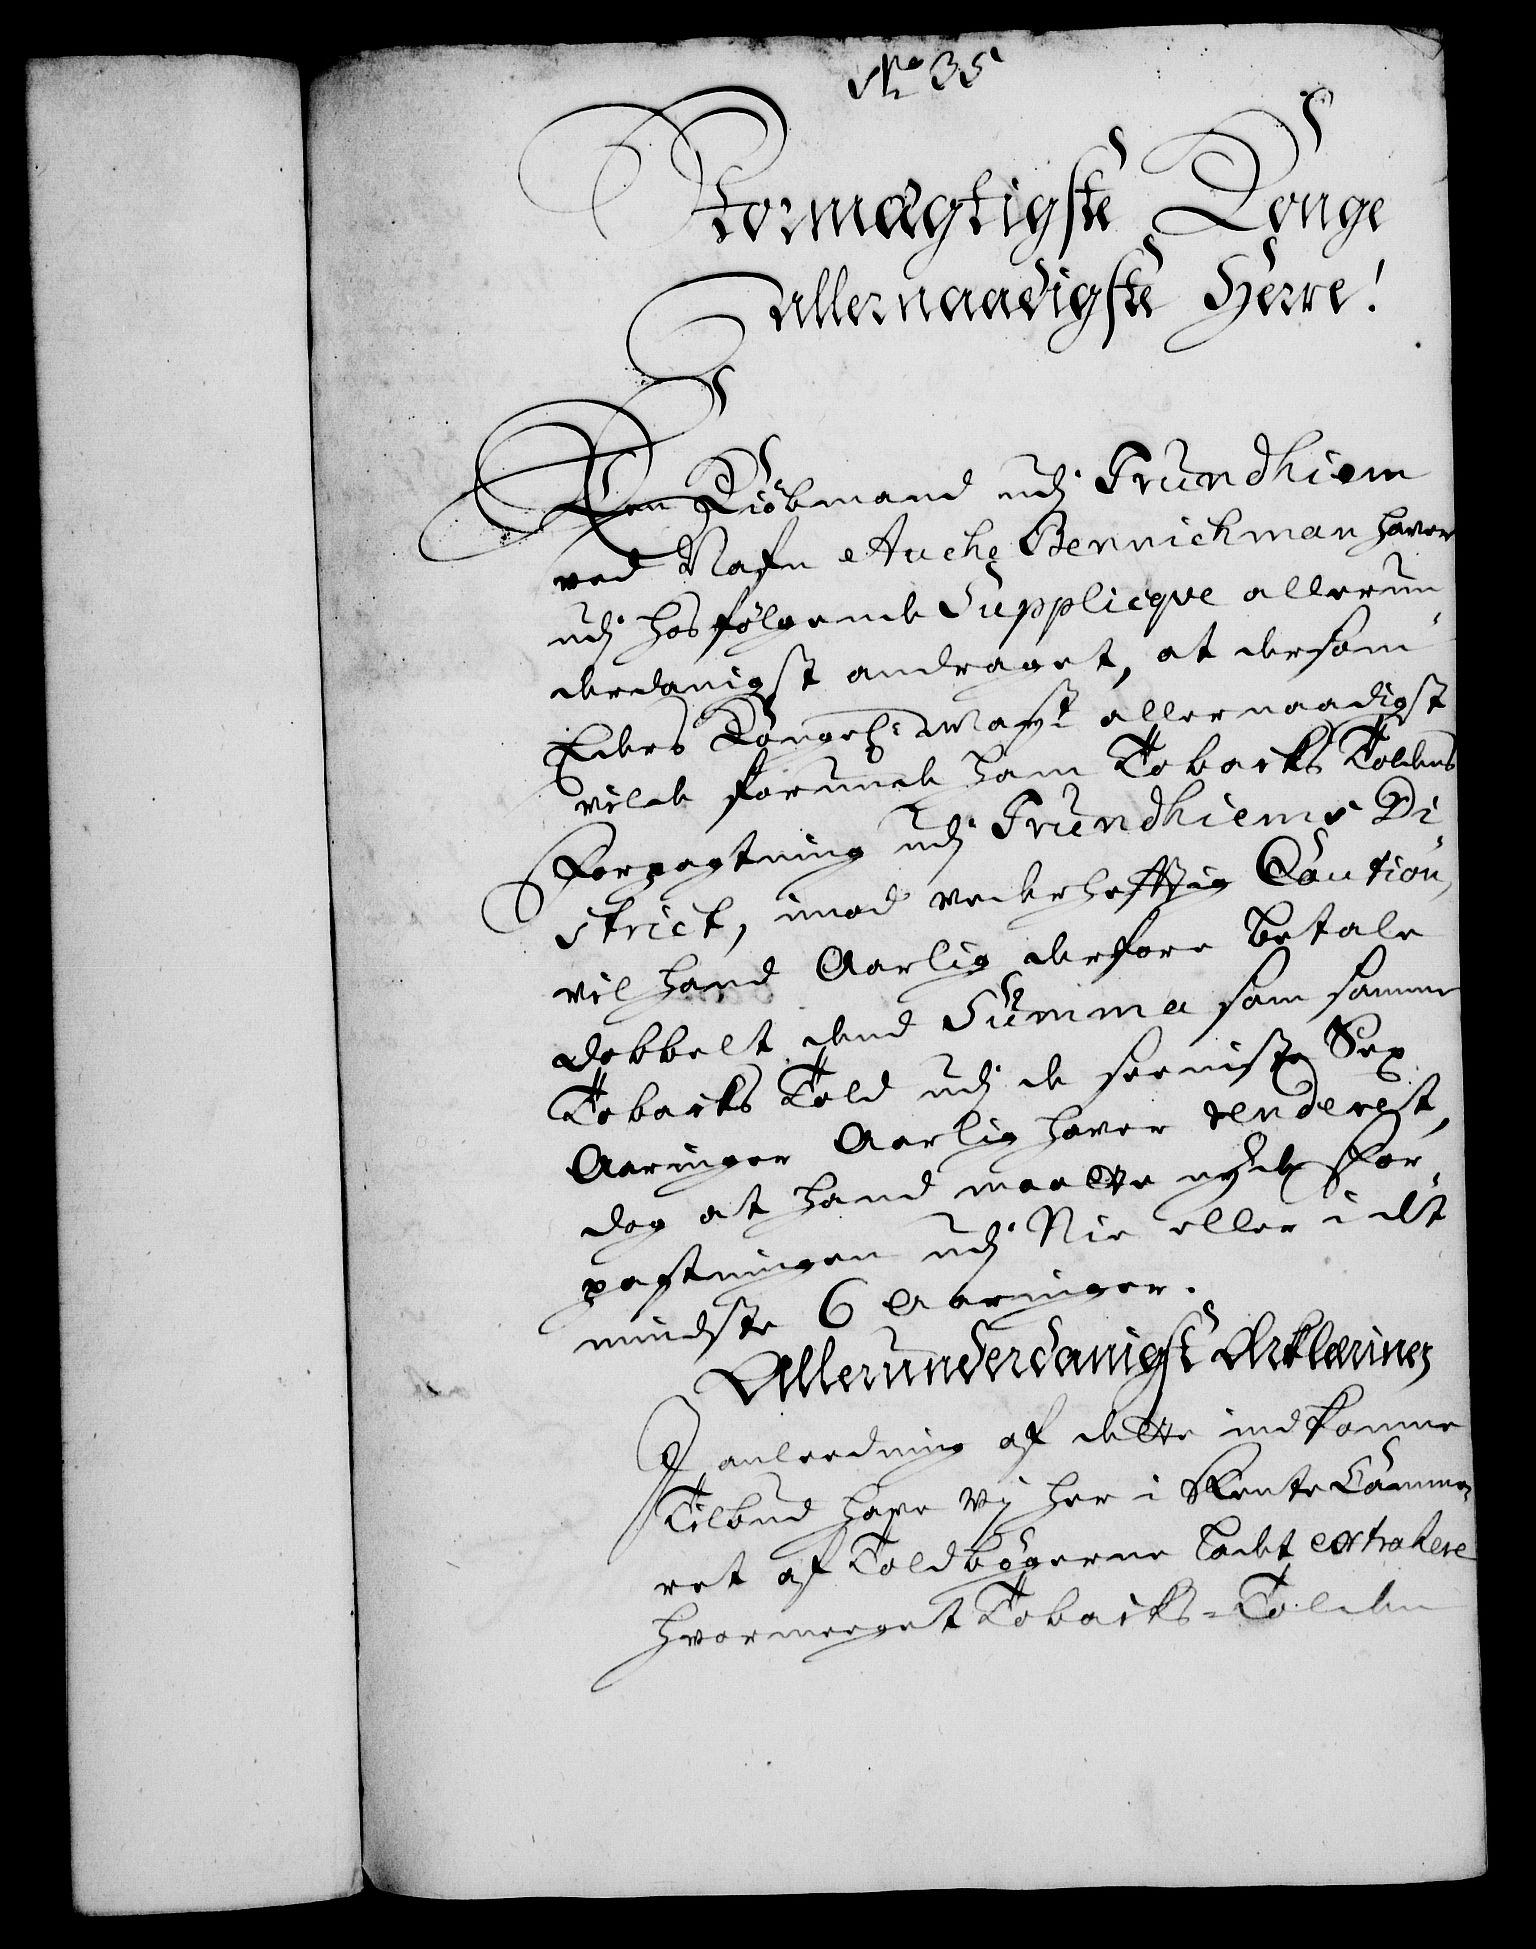 No 35
Stormægtigste Konge
Allernaadigste Herre!
Een Kiøbmand udj Trundhiem
ved Nafn Auche Bennichman haver
udj hosfølgende Supplicqve allerun„
derdanigst andraget, at dersom
Eders Kongel: Mayst allernaadigst
vilde forunde ham Tobacks Toldens
Forpagtning udj Trundhiems Di„
strict, imod vederheftig Caution,
vil hand Aarlig derfore betale
dobbelt dend Summa som samme
Tobacks Told udj de seeniste Sex
Aaringer Aarlig haver renderet,
dog at hand maatte nyde For„
pagtningen udj Nie eller i det
mindste 6 Aaringer.
Allerunderdanigst Erklæring
I anleedning af dette indkomne
Tilbud have Vj her i Rente Camme„
ret af Toldbøgerne ladet extrahere
hvormeeget Tobacks-Tolden